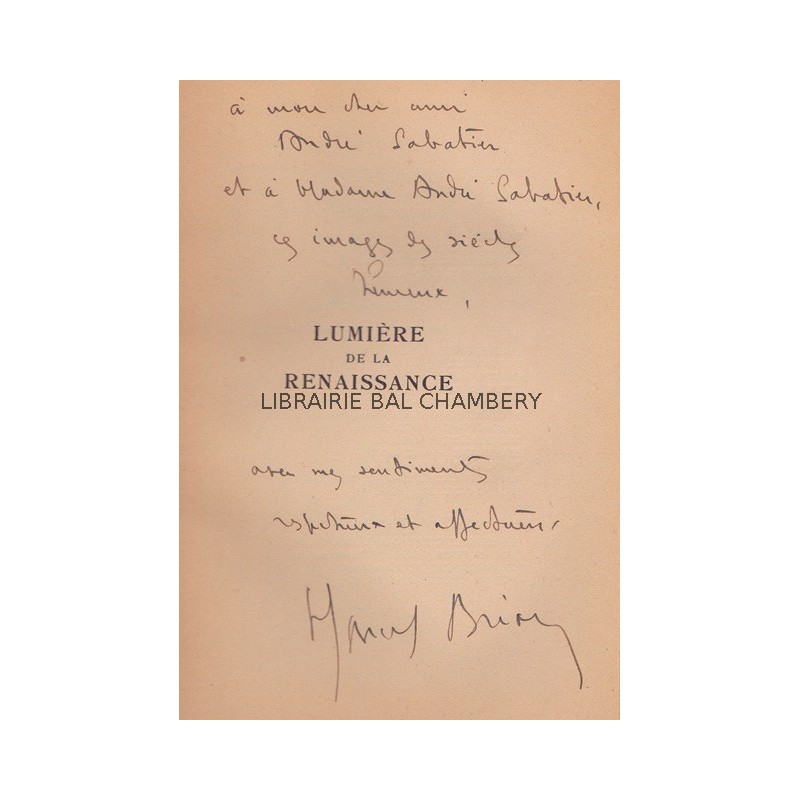 à mon cher ami
André Sabatier
et à Madame André Sabatier,
ces images des siècles
lumineux,
LUMIÈRE
DE LA
RENAISSANCE
LIBRAIRIE BAL CHAMBERY
avec mes sentiments
respectueux et affectueux,
Marcel Brion